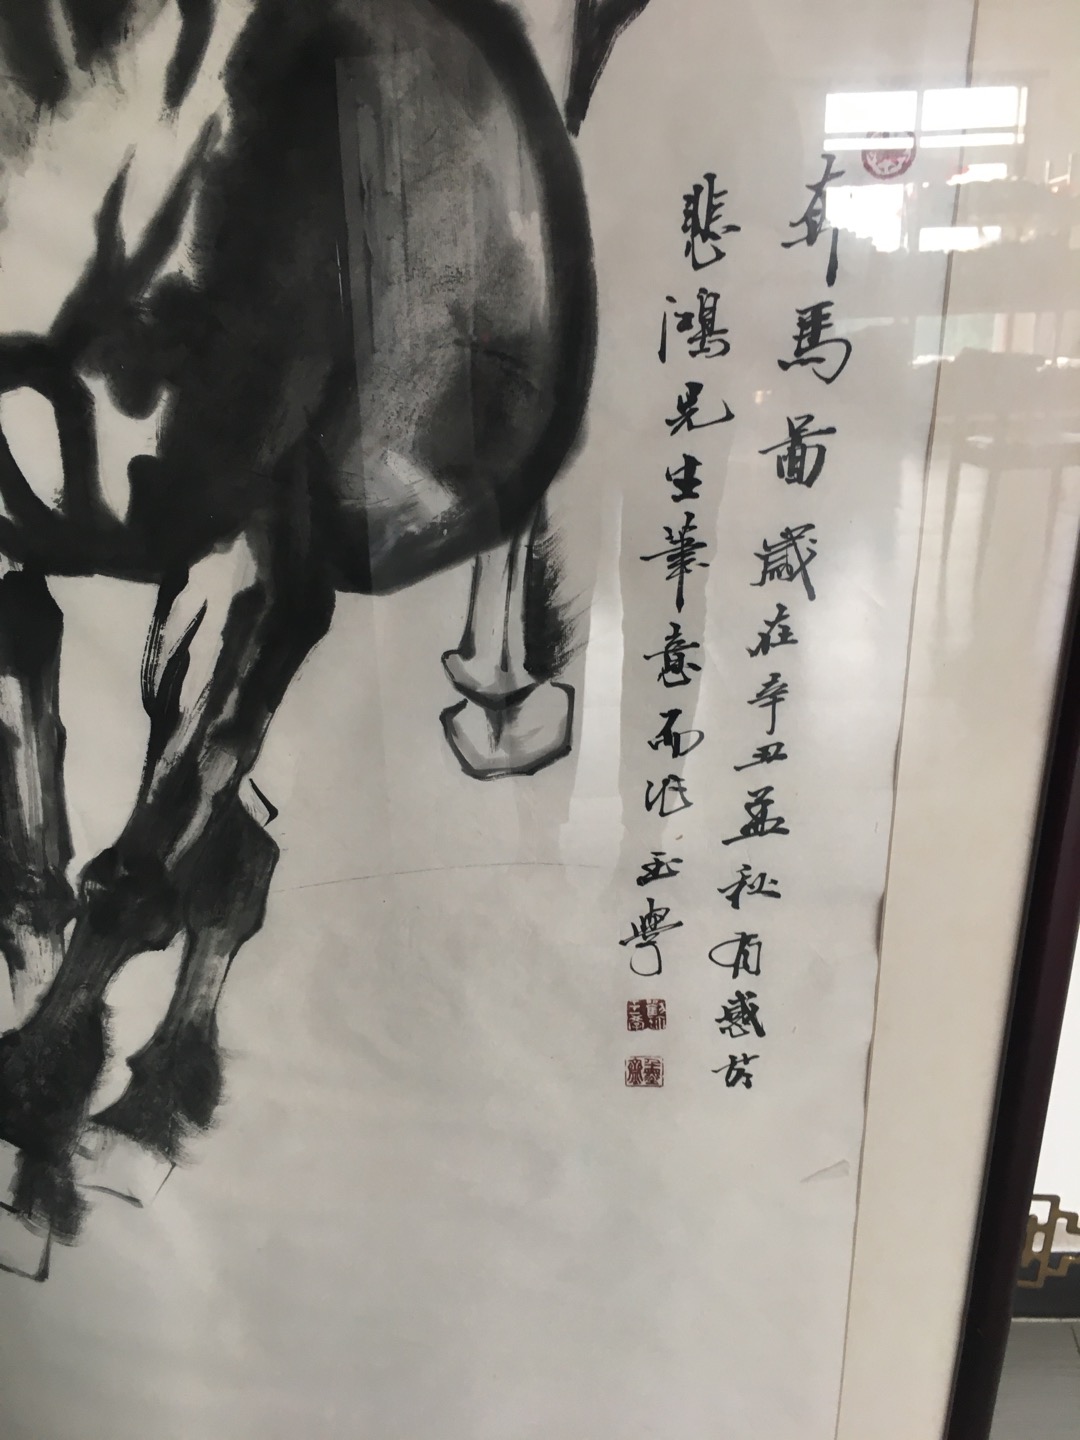 奔馬圖歲在辛丑孟秋有感於
悲鴻先生筆意而作玉學